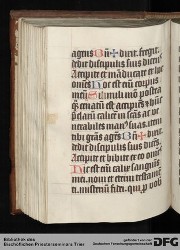 agens Bn✠dixit fregit
dedit discipulis suis dicens
Accipite et manducate ex hoc
omnes Hoc est enim corpus
meum Simili modo postea
quam cenatum est accipiens et hunc
preclarum calicem in sanctas ac ve
nerabiles manus suas item
tibi gratias agens Bn✠dixit
dedit discipulis suis dicens
Accipite et bibite ex eo omnes
Hic est enim calix sanguinis
mei novi et eterni testamenti
misterium fidei qui pro vobis
Bibliothek des
Bischöflichen Priesterseminars Trier
DFG
gefördert von der
Deutschen Forschungsgemeinschaft